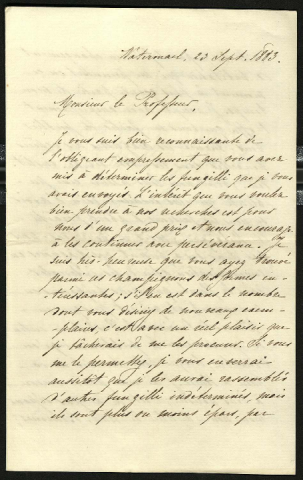 Watermael. 23 Sept. 1883.
Monsieur le Professeur,
Je vous suis bien reconnaissante de
l'obligeant empressement que vous avez
mis à déterminer les fungilli que je vous
avais envoyés. L'intérêt que vous voulez
bien prendre à nos recherches est pour
nous d'un grand prix et nous encourage
à les continuer avec persévérance. Je
suis très-heureuse que vous ayez trouvé
parmi ces champignons des formes in-
téressantes; s'il en est dans le nombre
dont vous désirez de nouveaux exem-
plaires, c'est avec un réel plaisir que
je tâcherais de me les procurer. Si vous
me le permettez, je vous enverrai
aussitôt que je les aurai rassemblés
d'autres fungilli indéterminés, mais
ils sont plus ou moins épars, par